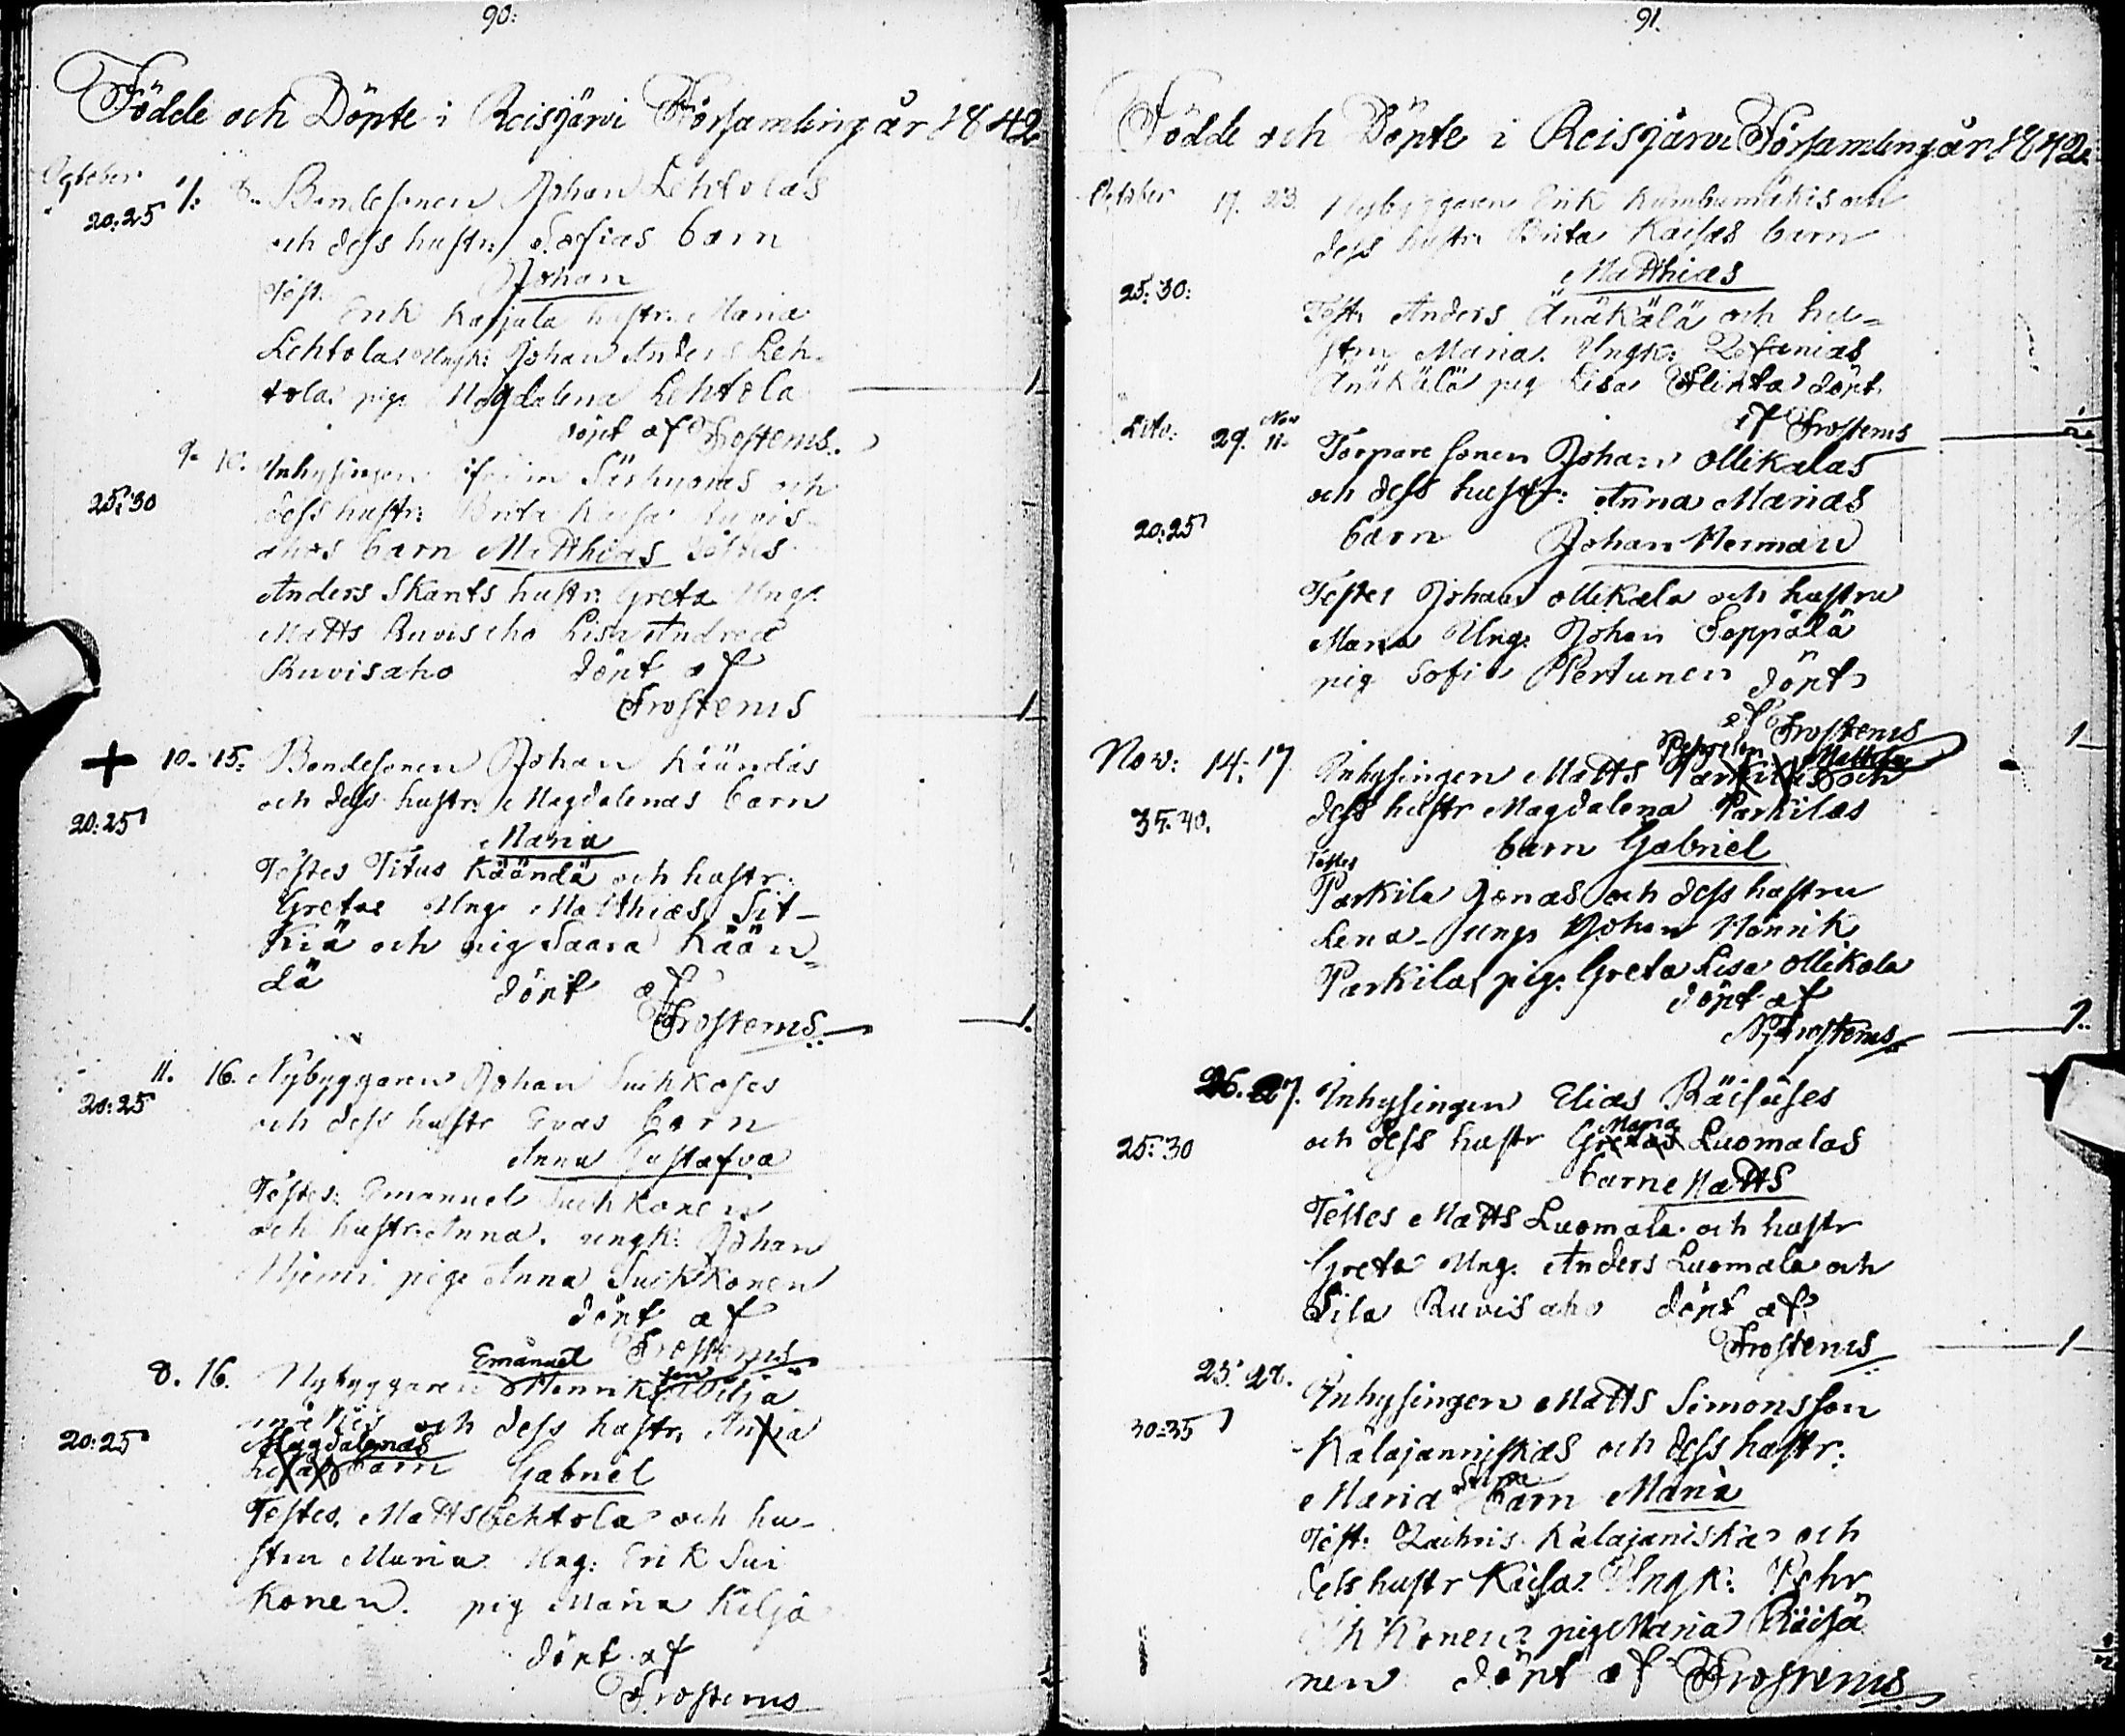 90:
Födde och Döpte i Reisjärvi Församling år 1842
October
20:25 1: 8. Bondesonen Johan Lehtolas
och dess hustr: Sofias barn
Johan
Test. Erik Karjula hustr. Maria
Lehtola. Ungk: Johan Anders Leh-
tola. pig. Magdalena Lehtola 1
döpt af Frostenus.
9. 10. Inhysingen Särkijoras och
25:30 dess hustr: Brita Kaisa Ruvis-
ahos barn Matthias Testes
Anders Skants hustr: Greta Ung.
Matts Ruvisaho Lisa Andrea
Ruvisaho döpt af
Frostenus 1
+ 10. 15. Bondesonen Johan Käändäs
och dess hustr: Magdalenas barn
20:25 Maria
Testes Titus Käändä och hustr.
Gretas Ung. Matthias Sit-
kiä och pig Saara Kään-
dä döpt af
Frostenus. 1.
11. 16. Nybyggaren Johan Suihkoses
20:25 och dess hustr Evas barn
Anna Gustafva
Testes: Emanuel Suihkonen
och hustr: Anna. ungk: Johan
Niemi pig. Anna Suihkonen
döpt af
Frostenus
8. 16. Nybyggaren Emanuel Henrik son Kilja
mäkis och dess hustr. Anna
20:25 Magdalenas
Lisas barn Gabriel
Testes. Matts Lehtola och hu-
stru Maria Ung: Erik Sui
konen. pig Maria Kilja
döpt af
Frostenus
91.
Födde och Döpte i Reisjärvi Församling år 1842.
October 17. 23. Nybyggaren Erik Kumbumäkis och
dess hustr. Brita Kaisas barn
25:30: Matthias
Test. Anders Änäkälä och hu-
stru Maria. Ungk: Zefanias
Änäkälä pig Lisa Flinta döpt
af Frostenus
dito: 29. Nov 11. Torpare sonen Johan Ollikalas
och dess hustr: Anna Marias
20:25 barn Johan Herman
Testes Johan Ollikala och hustru
Maria Ung. Johan Seppälä
pig Sofia Pertunen döpt
af Frostenus 1
Nov: 14. 17. Inhysingen Matts Parkilas och
35.40. dess hustr Magdalena Parkilas
barn Gabriel
Testes
Parkila Jonas och dess hustru
Lena. Ungs Johan Hänrik
Parkila, pig. Greta Lisa Ollikala
döpt af
N. Frostenus 1.
26. 27. Inhysingen Elias Räisäses
25:30 och dess hustr Gretas Maria Luomalas
barn Matts
Testes Matts Luomala och hustr
Greta Ung. Anders Luomala och
Sila Ruvisaho döpt af
Frostenus 1
25. 28. Inhysingen Matts Simonsson
30:35 Kalajanniskas och dess hustr:
Maria barn Maria
Test: Zachris Kalajaniska och
dess hustr Kaisa. Ungk: Pehr
pig Maria Räisä
nen döpt af Frostenus